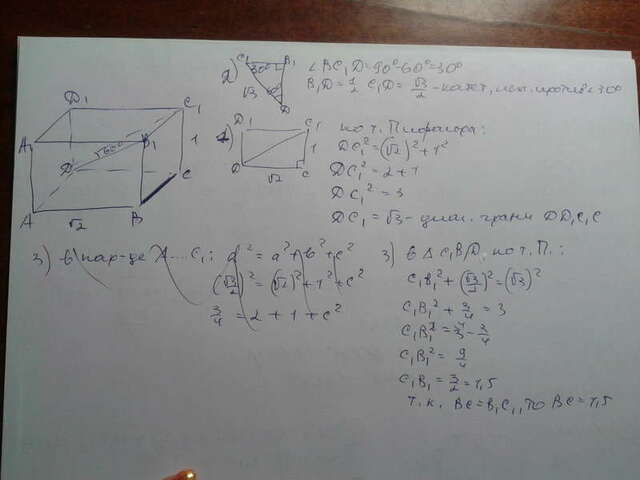 2) C₁ B₁ 30° √3 60° D
∠BC₁D=90°-60°=30°
B₁D=½ C₁D= √3/2 - катет, леж. против ∠30°
D₁ C₁ A₁ B₁ 60° 1 D C A √2 B
1) D₁ C₁ 1 D √2 C
по т. Пифагора:
DC₁²=(√2)²+1²
DC₁²=2+1
DC₁²=3
DC₁=√3- диаг. грани DD₁C₁C
3) в пар-де A....C₁: d²=a²+b²+c²
(√3/2)²=(√2)²+1²+c²
3/4=2+1+c²
3) в Δ C₁B₁D, по т. П.:
C₁B₁²+(√3/2)²=(√3)²
C₁B₁²+3/4=3
C₁B₁²=3-3/4
C₁B₁²=9/4
C₁B₁=3/2=1,5
т.к. BC=B₁C₁, то BC=1,5